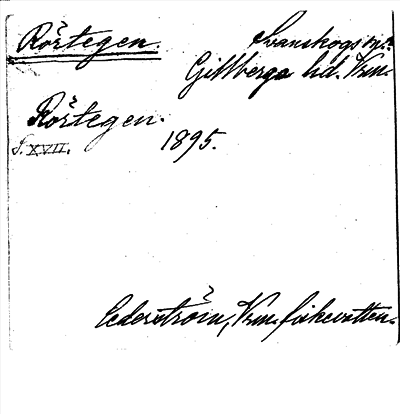 Rörtegen.
Svanskogs sn.
Gillberga hd. Vrm.
Rörtegen.
S. XVII. 1895.
Cederström, Vrm. fiskevatten.